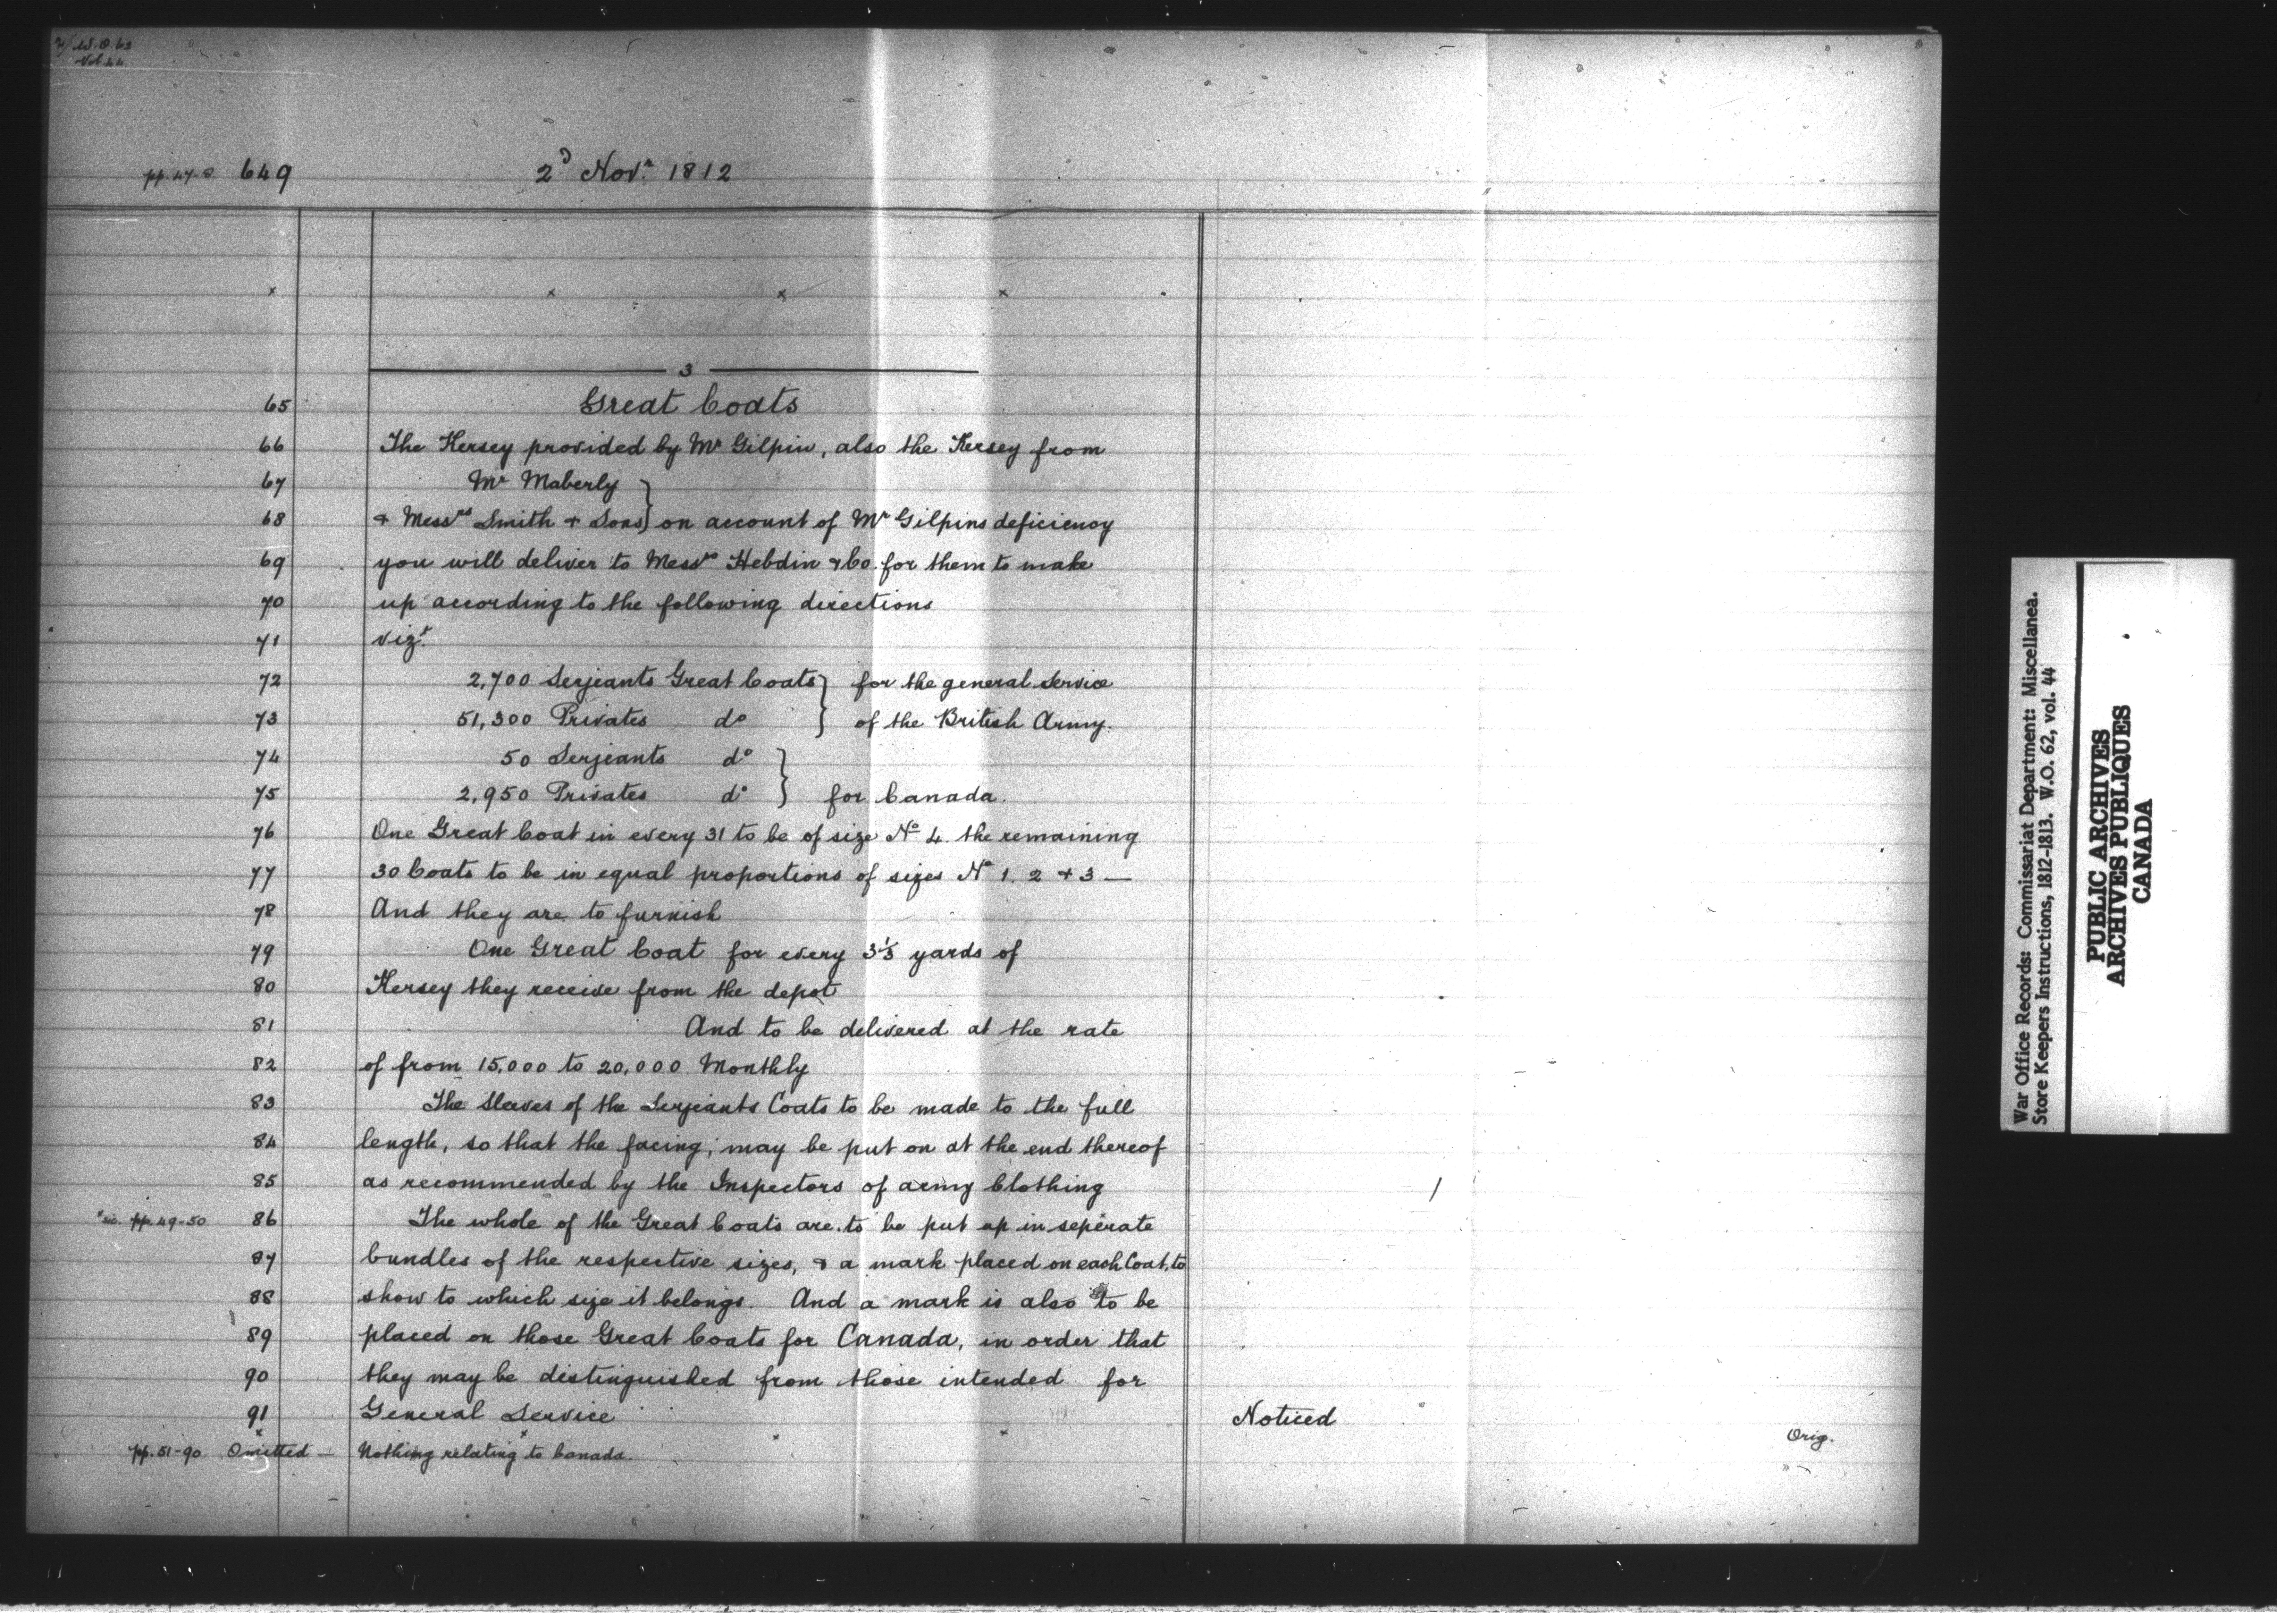 W.O. 62
Vol. 44
pp. 47-8. 649 2ᴰ Novʳ. 1812
x x x x
3
65 Great Coats
66 The Kersey provided by Mʳ Gilpin, also the Kersey from
67 Mʳ Maberly }
68 & Messʳˢ Smith & Sons } on account of Mʳ Gilpins deficiency
69 you will deliver to Messʳˢ Hebdin & Co. for them to make
70 up according to the following directions
71 vizᵗ.
72 2,700 Serjeants Great Coats } for the general Service
73 51,300 Privates dº } of the British Army.
74 50 Serjeants dº }
75 2,950 Privates dº } for Canada.
76 One Great Coat in every 31 to be of size Nº 4. the remaining
77 30 Coats to be in equal proportions of sizes Nº 1. 2 & 3 —
78 And they are to furnish
79 One Great Coat for every 3⅓ yards of
80 Kersey they receive from the depot
81 And to be delivered at the rate
82 of from 15,000 to 20,000 Monthly
83 The Sleeves of the Serjeants Coats to be made to the full
84 length, so that the facing, may be put on at the end thereof
85 as recommended by the Inspectors of army Clothing
*sic. pp. 49-50 86 The whole of the Great Coats are to be put up in seperate
87 bundles of the respective sizes, & a mark placed on each Coat, to
88 show to which size it belongs. And a mark is also to be
89 placed on those Great Coats for Canada, in order that
90 they may be distinguished from those intended for
91 General Service Noticed
Orig.
pp. 51-90 Omitted — Nothing relating to Canada.
War Office Records: Commissariat Department: Miscellanea.
Store Keepers Instructions, 1812-1813. W.O. 62, vol. 44
PUBLIC ARCHIVES
ARCHIVES PUBLIQUES
CANADA